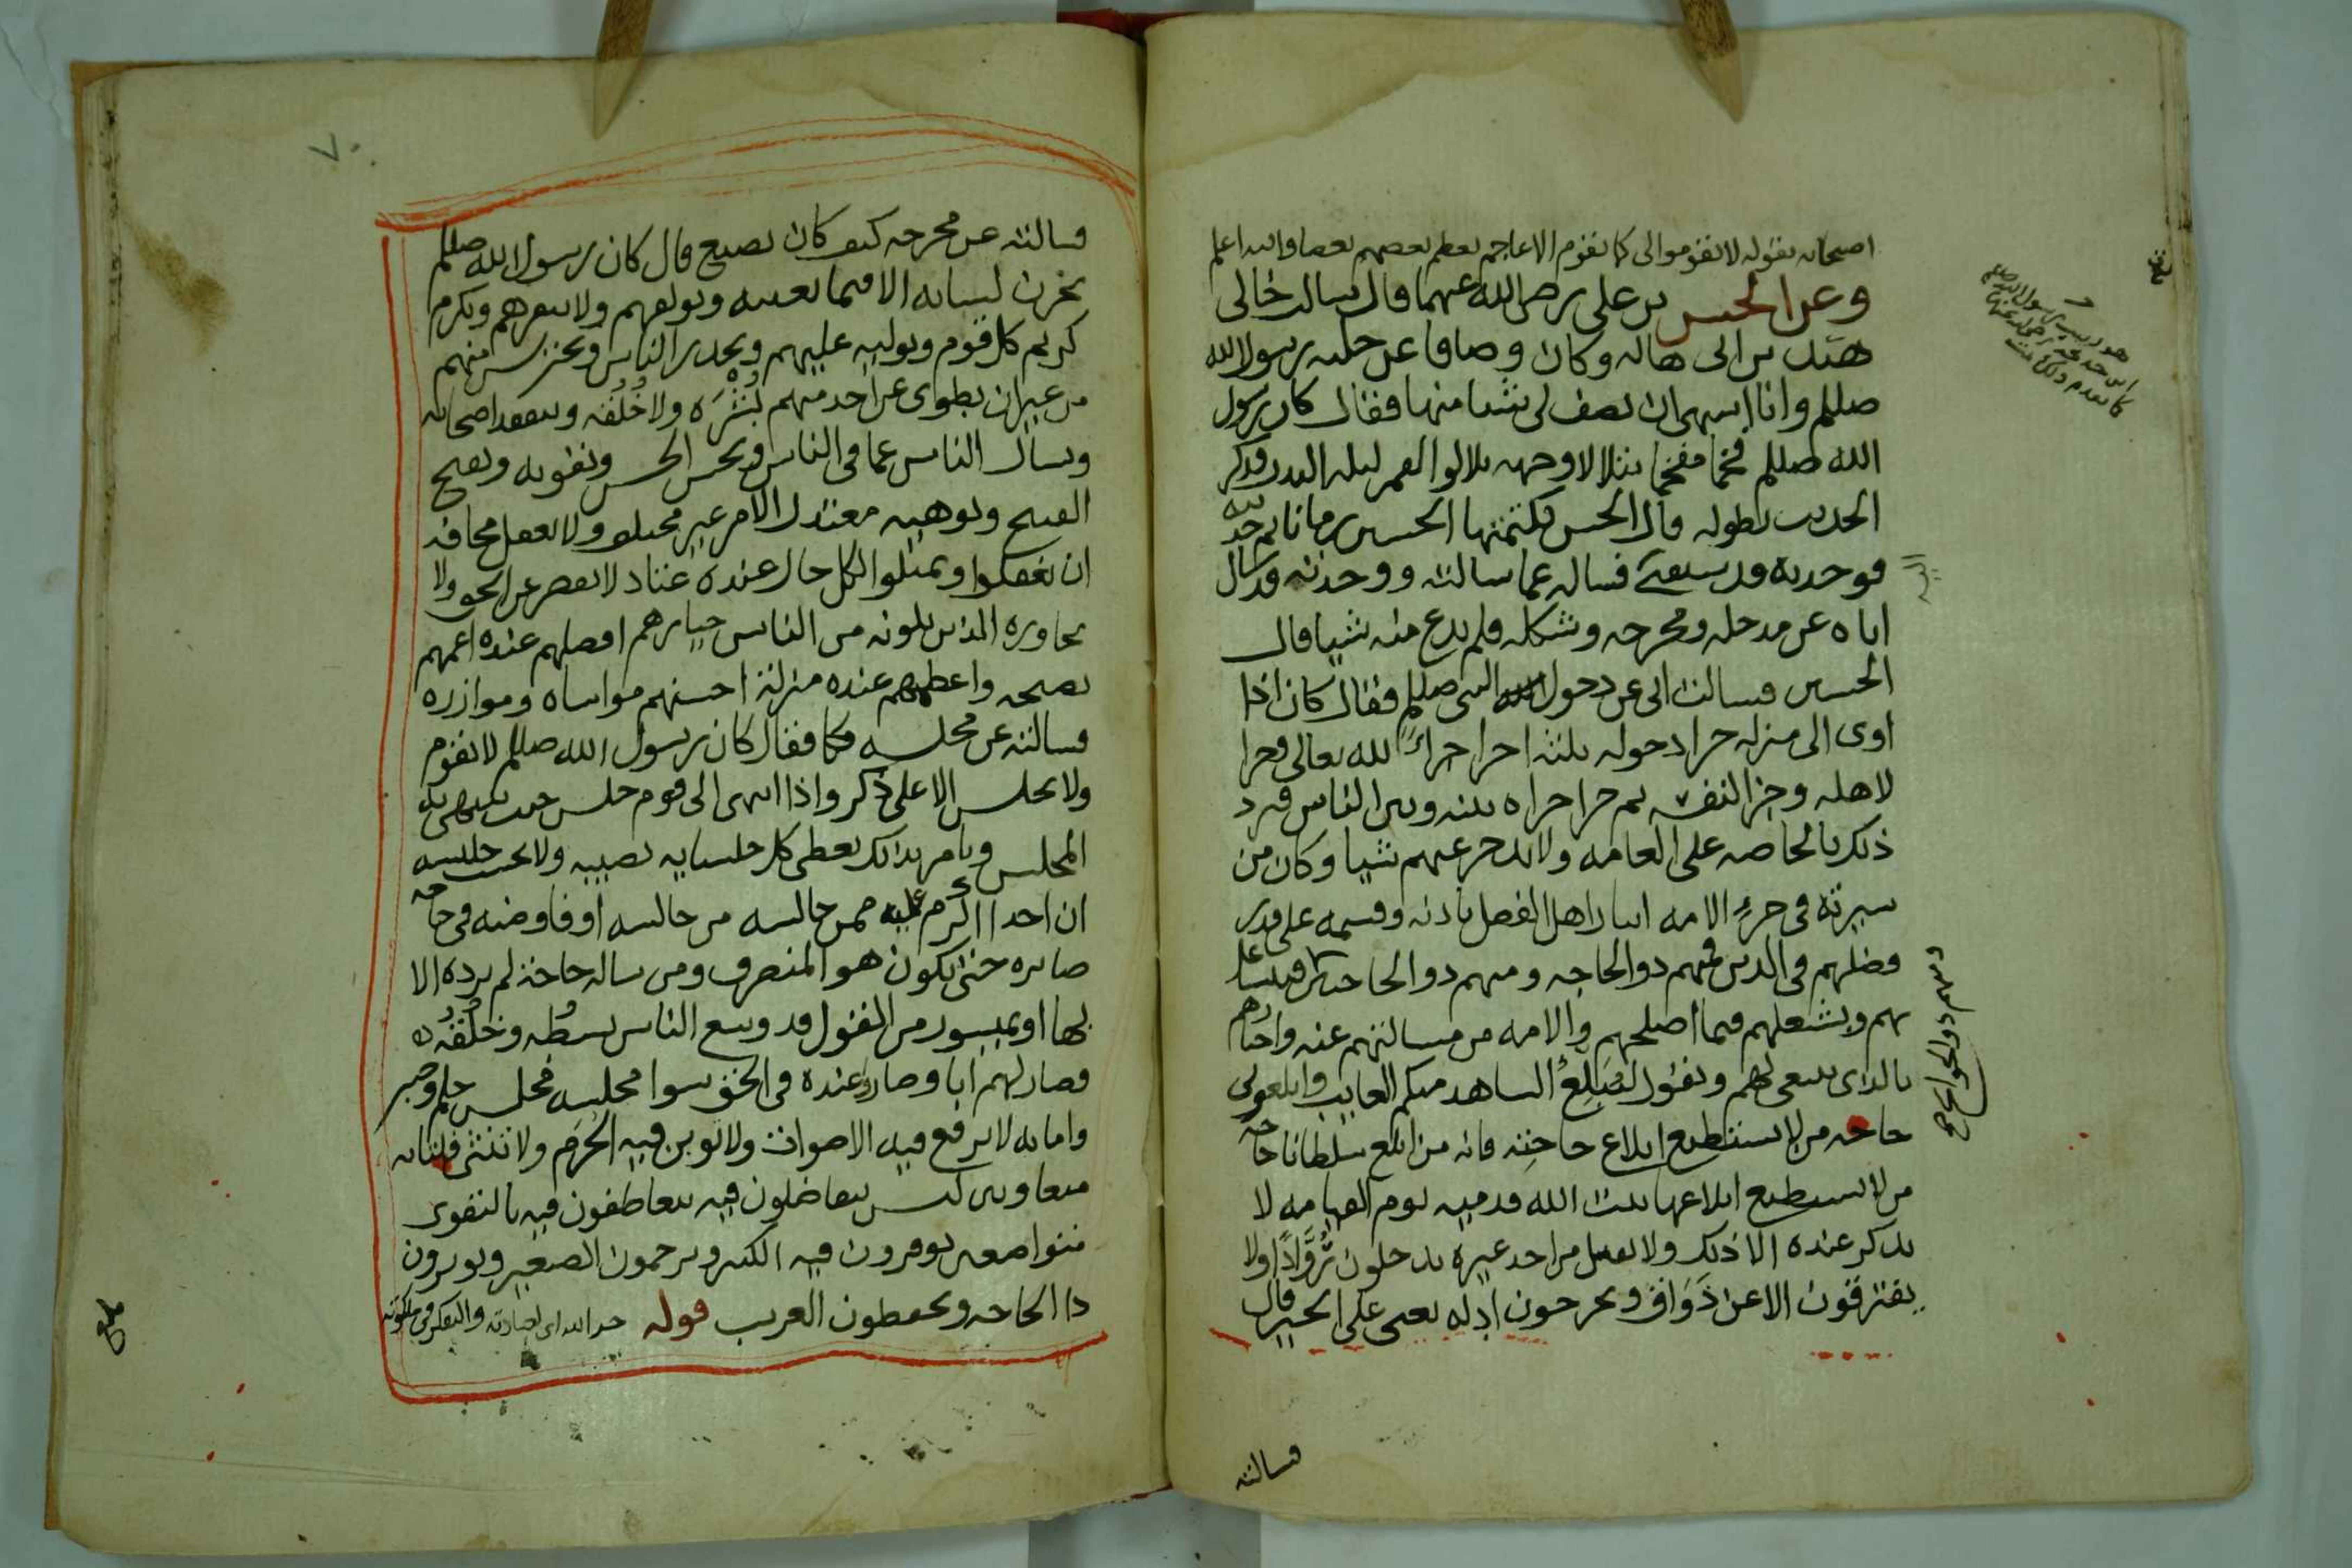 اصحابه بقوله لا تقوموا لي كما تقوم الاعاجم يعظم بعضهم بعضا والله اعلم
وعن الحسن بن علي رضي الله عنهما قال سالت خالي
هند بن ابي هالة وكان وصافا عن حلية رسول الله
صللم وانا اشتهي ان يصف لي شيا منها فقال كان رسول
الله صللم فخما مفخما يتلالا وجهه تلالو القمر ليلة البدر وذكر
الحديث بطوله قال الحسن فكتمتها الحسين زمانا ثم حدثته
فوجدته قد سبقني فساله عما سالته ووجدته قد سال
اباه عن مدخله ومخرجه وشكله فلم يدع منه شيا قال
الحسين فسالت ابي عن دخول النبي صللم فقال كان اذا
اوى الى منزله جزا دخوله ثلثة اجزا جزاءً لله تعالى وجزا
لاهله وجزا لنفسه ثم جزا جزاه بينه وبين الناس فيرد
ذلك بالخاصه على العامه ولا يدخر عنهم شيا وكان من
سيرته في جزء الامه ايثار اهل الفضل باذنه وقسمه على قدر
فضلهم في الدين فمنهم ذو الحاجه ومنهم ذو الحاجتين فيتشاغل
بهم ويشغلهم فيما اصلحهم والامه من مسالتهم عنه واخبارهم
بالذي ينبغي لهم ويقول ليُبَلِّغ الشاهد منكم الغايب وابلغوني
حاجه من لا يستطيع ابلاغ حاجته فانه من ابلغ سلطانا حاجه
من لا يستطيع ابلاغها ثبت الله قدميه يوم القيامه لا
يذكر عنده الا ذلك ولا يقبل من احد غيره يدخلون رُوَّادًا ولا
يفترقون الا عن ذَوَاق ويخرجون ادله يعني على الخير قال
فسالته
ومنهم ذو الحوايج
فسالته عن مخرجه كيف كان يصنع قال كان رسول الله صللم
يخزن لسانه الا فيما يعنيه ويولفهم ولا ينفرهم ويكرم
كريم كل قوم ويوليه عليهم ويحذر الناس ويحترس منهم
من غير ان يطوي عن احد منهم بُشْرَه ولا خُلُقَه ويتفقد اصحابه
ويسال الناس عما في الناس ويحسن الحسن ويقويه ويقبح
القبيح ويوهيه معتدل الامر غير مختلف ولا يغفل مخافه
ان يغفلوا او يميلوا لكل حال عنده عتاد لا يقصر عن الحق ولا
يجاوره الذين يلونه من الناس خيارهم افضلهم عنده اعمهم
نصيحه واعظمهم عنده منزلة احسنهم مواساه وموازره
فسالته عن مجلسه فقال كان رسول الله صللم لا يقوم
ولا يجلس الا على ذكر واذا انتهى الى قوم جلس حيث ينتهي به
المجلس ويامر بذلك يعطي كل جلسايه نصيبه ولا يحسب جليسه
ان احدا اكرم عليه ممن جالسه من جالسه او فاوضه في حاجه
صابره حتى يكون هو المنصرف ومن ساله حاجة لم يرده الا
بها او بميسور من القول قد وسع الناس بسطُه وخُلُقُه
فصار لهم ابا وصاروا عنده في الحق سوا مجلسه مجلس حلم وصبر
وامانه لا ترفع فيه الاصوات ولا توبن فيه الحُرَم ولا تنثى فلتاته
متعادلين يتفاضلون فيه يتعاطفون فيه بالتقوى
متواضعين يوقرون فيه الكبير ويرحمون الصغير ويوثرون
ذا الحاجه ويحفظون الغريب قوله جزا لله اي لعبادته والتفكر في ملكوته
بلغ
٧٠